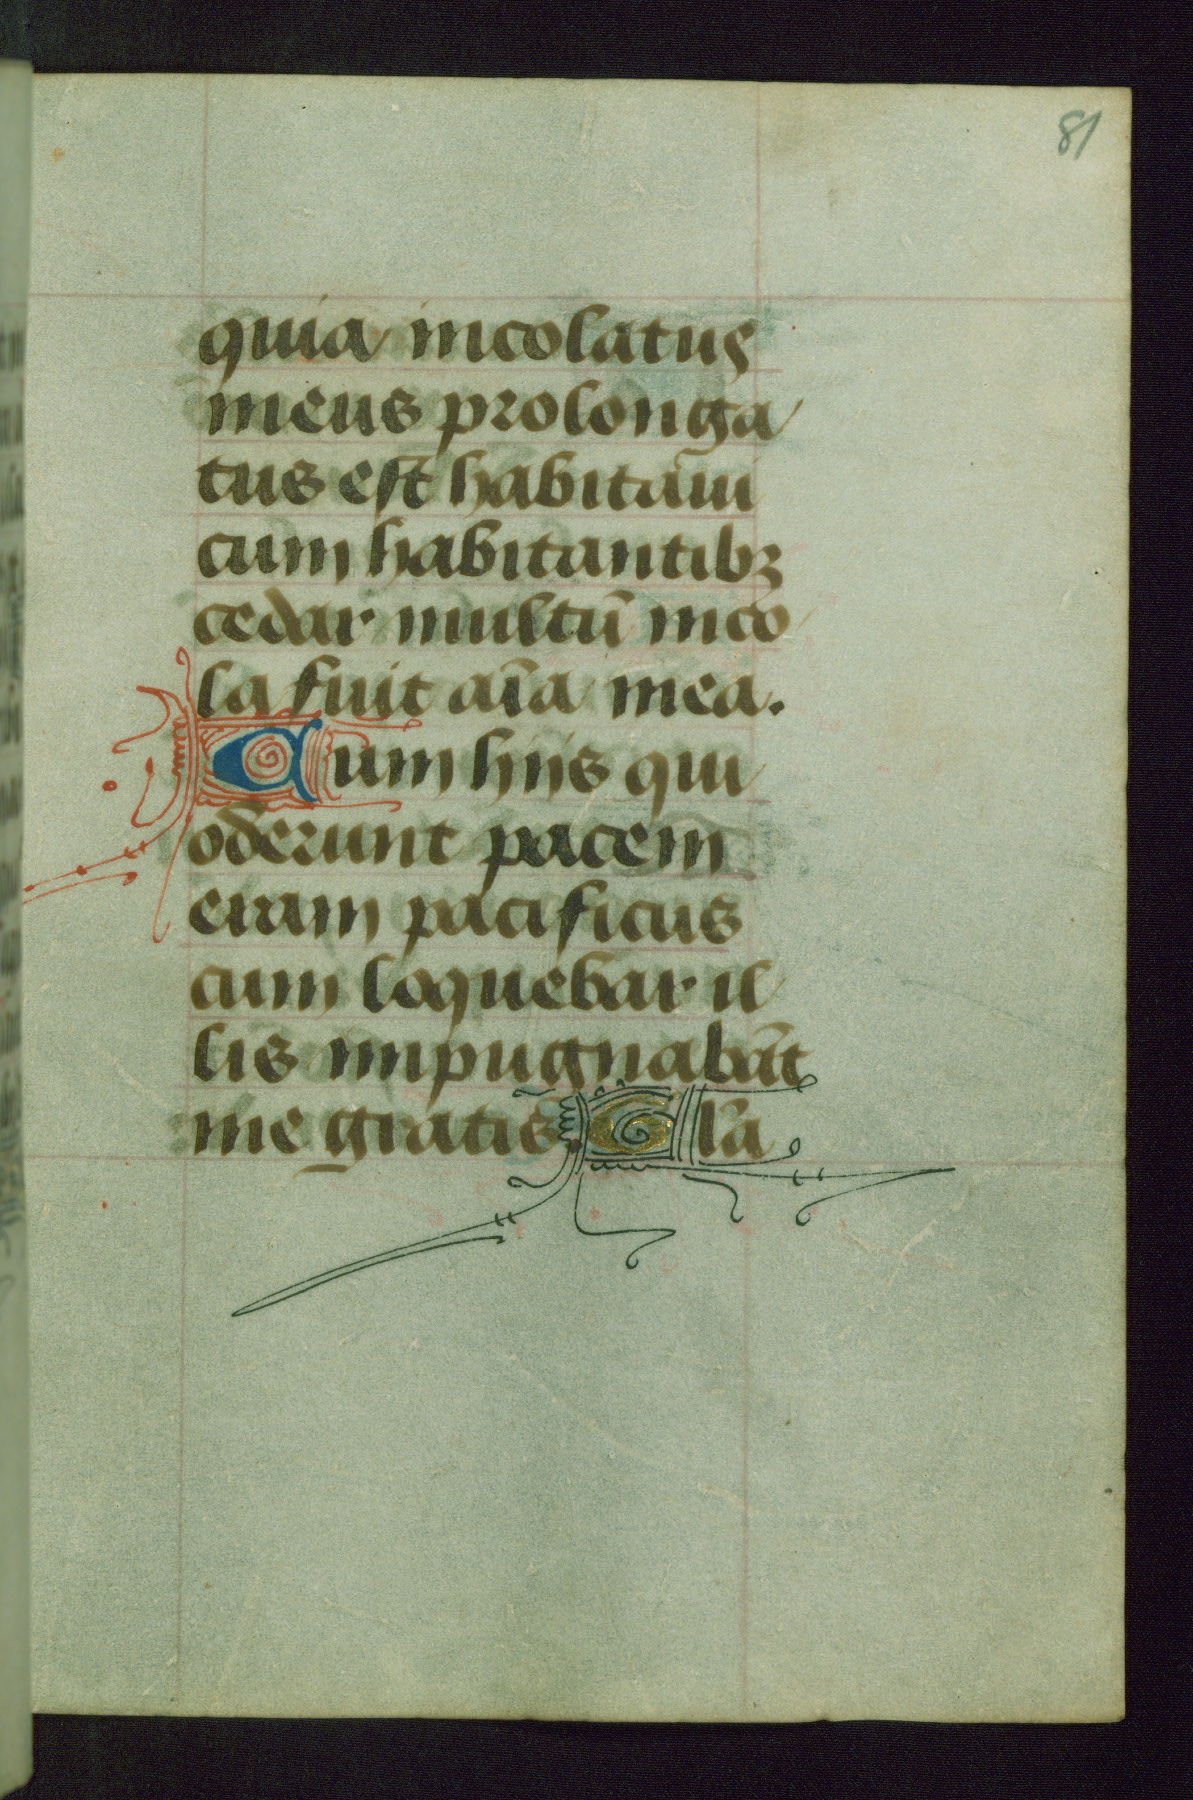 81
quia incolatus
meus prolonga
tus est habitaui
cum habitantibꝫ
cedar multū inco
la fuit aīa mea.
Cum hiis qui
oderunt pacem
eram pacificus
cum loquebar il
lis impugnabāt
me gratis. Glā